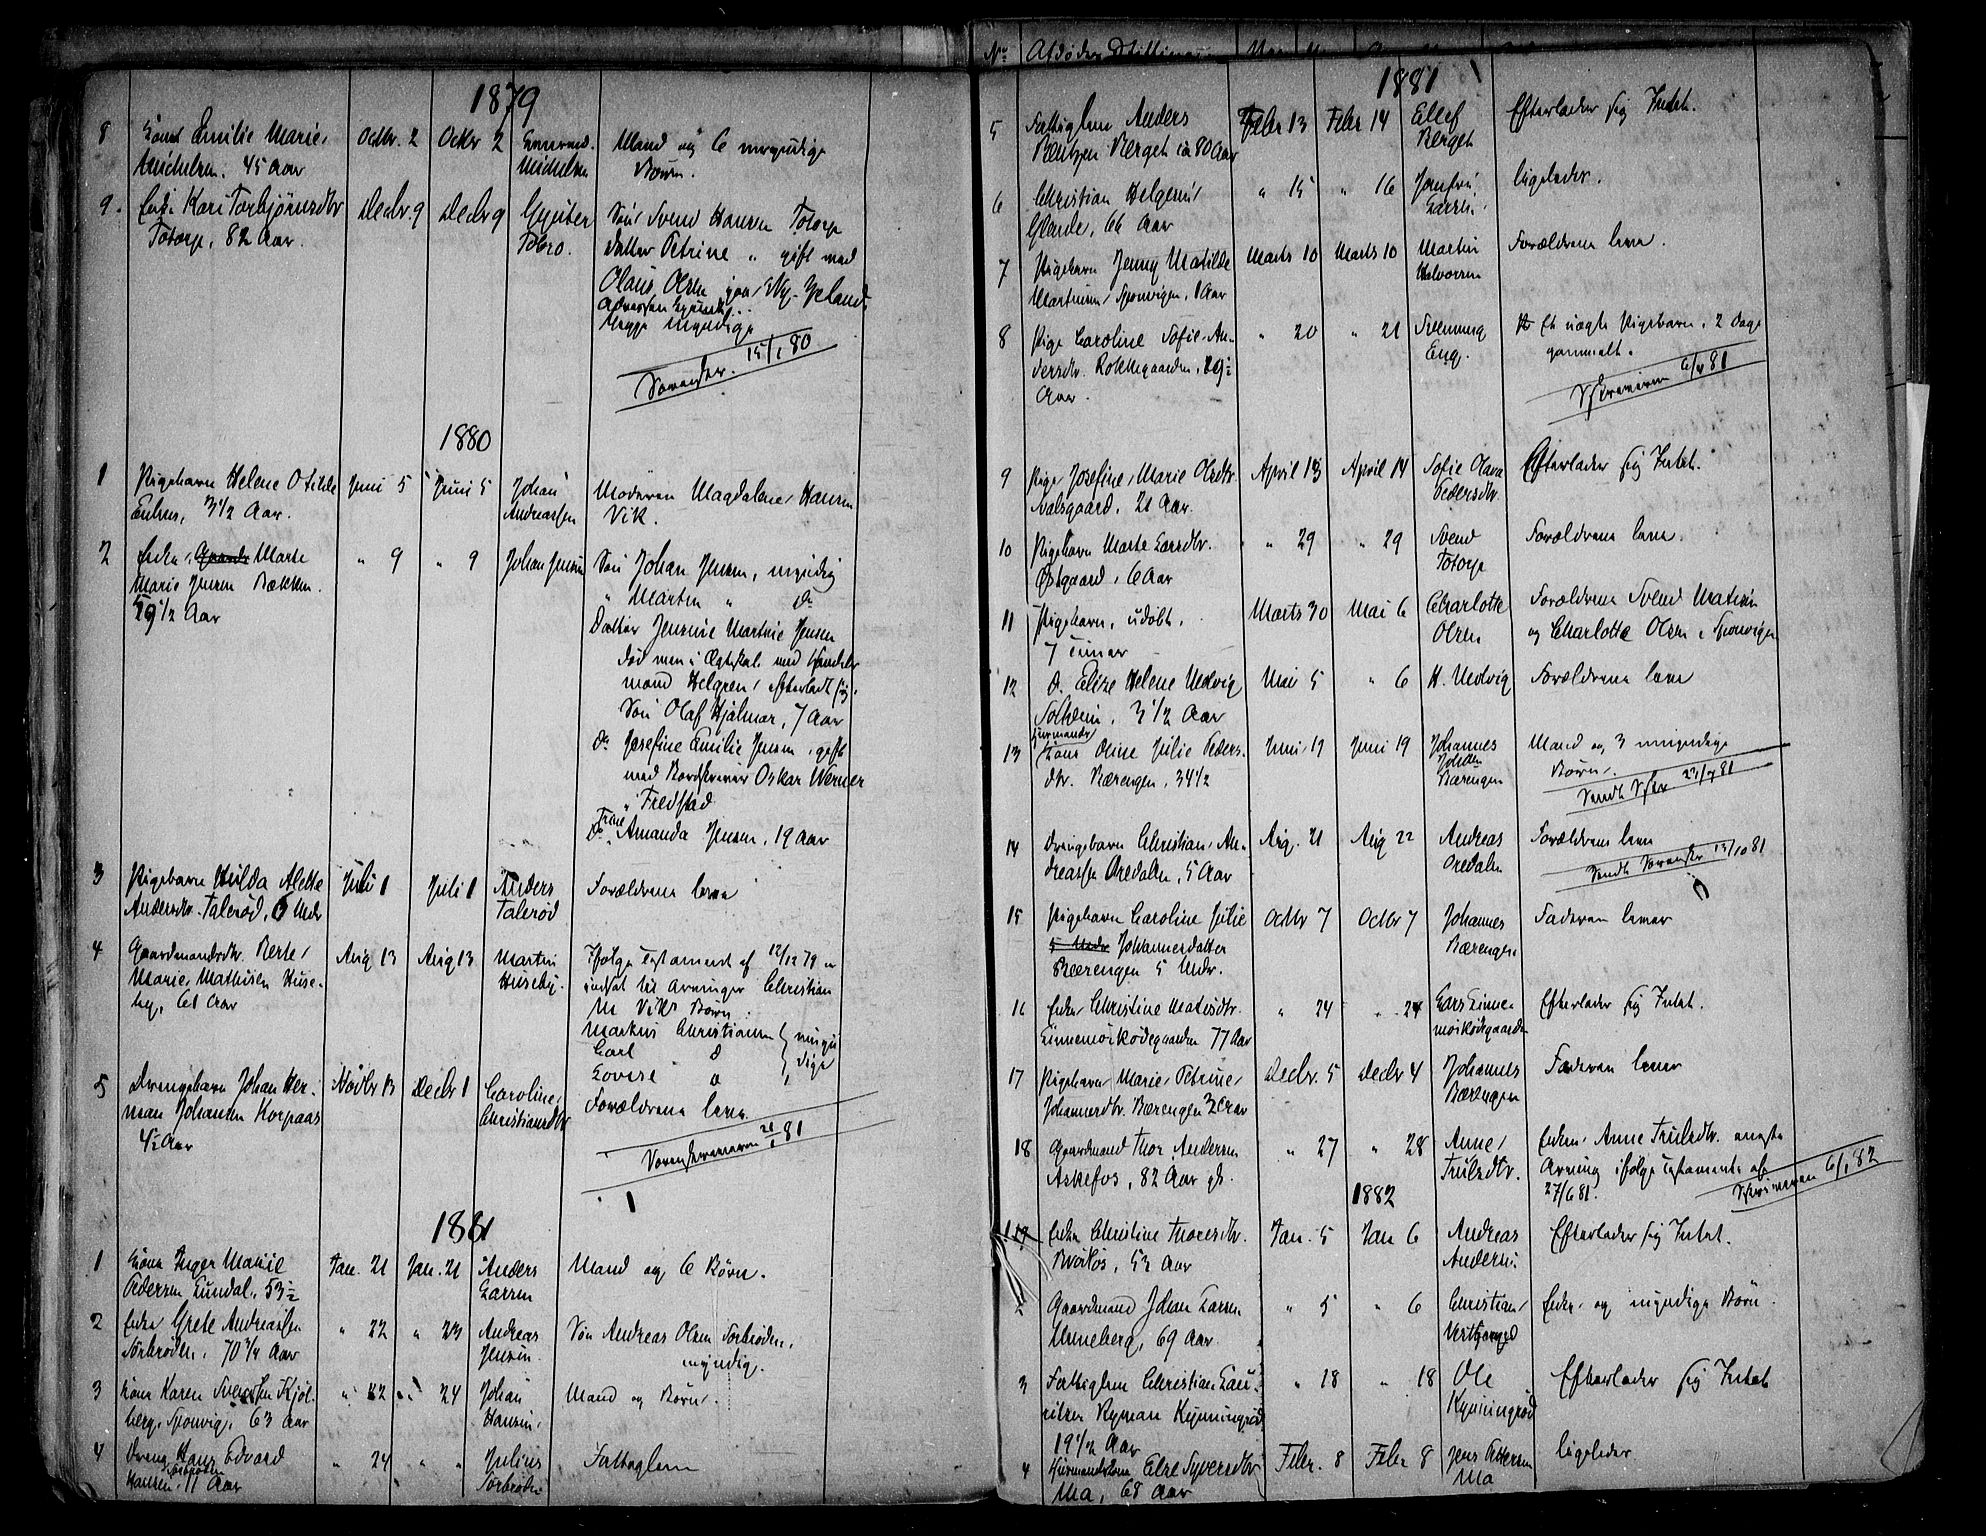 1879
8 Kone Emilie Marie Octbr. 2 Octbr 2 Mand og 6 umyndige
Michelsen. 45 Aar Michelsen Børn.
9. Enke Kari Torbjørnsdtr Decbr 9 Decbr 9 Søn Svend Hansen Totorp
Totorp, 82 Aar. Datter Petrine " gift med
Olaus Olsen
umyndige
15/1 80
1880
1 Pigebarn Helene Otilde Juni 5 Juni 5 Johan Moderen Magdalene Hansen
3 1/2 Aar. Andreassen Vik.
2 Enke Marte " 9 " 9 Johan Jensen Søn Johan Jensen, myndig
Marie Jensen Bækken. " Martin " do
59 1/2 Aar
Datter Jensine Martine Jensen
død men i Ægteskab med
mand Helgren efterladt sig
Søn Olaf Hjalmar, 7 Aar
do Josefine Emilie Jensen, gift
med Oskar Werner
Fredstad
do Trine Amanda Jensen, 19 Aar
3 Pigebarn Hulda Alette Juli 1 Juli 1 Anders Forældrene leve
Andersdtr. Talerød, 6 Mdr Talerød
4 Gaardmandsdtr. Berte Aug 13 Aug 13 Martin Ifølge Testament af 12/12 79 er
Marie Mathisen Huse- Huseby. indsat til Arvinger Christian
by, 61 Aar M Viks Børn:
Markus Christiansen umyn-
Carl d dige
Lovise d
5 Drengebarn Johan Her- Novbr 13 Decbr 1 Caroline Forældrene leve.
man Johansen Korpaas Christiansdtr
4 1/2 Aar
21/1 81
1881
1 Kone Inger Marie Jan. 21 Jan. 21 Anders Mand og 6 Børn.
Pedersen Lundal, 53 1/2 Larsen
2 Enke Grete Andreassen " 22 " 23 Andreas Søn Andreas Olsen Torbrøden,
Torbrøden, 70 3/4 Aar Jensen. myndig.
3 Kone Karen Svendsen Kjøl- " 22 " 24 Johan Mand og Børn.
berg, Sponvig, 63 Aar Hansen,
4 Dreng Hans Edvard " 24 " " Julius Fattiglem
Hansen Torbrøden, 11 Aar Torbrøden
No Afdødes Stilling
1881
5 Fattiglem Anders Febr 13 Febr 14 Ellef Efterlader sig Intet.
Bentzen Berget ca 80 Aar Berget
6 Christian Helgesen " 15 " 16 ligeledes.
66 Aar Larsen.
7 Pigebarn Jenny Matilde Marts 10 Marts 10 Martin Forældrene leve.
Martinsen Sponvigen, 1 Aar Halvorsen
8 Pige Caroline Sofie An- " 20 " 21 Svenning Et uægte Pigebarn, 2 Dage
dersdtr. Rokkegaarden, Eng. gammelt.
Aar.
6/4 81
9 Pige Josefine Marie Olsdtr April 13 April 14 Sofie Olava Efterlader sig Intet.
21 Aar. Pedersdtr.
10 Pigebarn Marte Larsdtr. " 29 " 29 Svend Forældrene leve.
Østgaard, 6 Aar Totorp
11 Pigebarn, udøbt, Marts 30 Mai 6 Charlotte Forældrene Svend Matisen
7 Timer Olsen og Charlotte Olsen, Sponvigen
12 D. Elise Helene Hedvig Mai 5 " 6 H. Hedvig Forældrene leve
Solheim, 3 1/2 Aar
13 Husmands
Kone Oline Julie Peders- Juni 19 Juni 19 Johannes Mand og 3 umyndige
dtr. Bærengen, 34 1/2 Johan Børn.
Bærengen
81
14 Drengebarn Christian An- Aug. 21 Aug 22 Andreas Forældrene leve
dreassen Oredalen, 5 Aar Oredalen
Sendt 15/10 81
15 Pigebarn Caroline Julie Octbr 7 Octbr 7 Johannes Faderen lever
5 Mdr Johannesdatter Bærengen.
Bærengen 5 Mdr.
16 Enke Christine Matisdtr. " 24 " 24 Lars Efterlader sig Intet.
77 Aar
17 Pigebarn Marie Petrine Decbr. 5 Decbr 4 Johannes Faderen lever
Johannesdtr. Bærengen Bærengen
18 Gaardmand Thor Andersen " 27 " 28 Anne Enken Anne Trulsdtr. eneste
Askefos, 82 Aar gl. Trulsdtr. Arving ifølge Testamente af
27/6 81.
6/1 82
1882
1 Enke Christine Thoresdtr. Jan. 5 Jan 6 Andreas Efterlader sig Intet.
53 Aar Andersen.
2 Gaardmand Johan Larsen " 5 " 6 Christian Enke og myndige Børn.
Unneberg, 69 Aar.
3 Fattiglem Christian Lau- " 18 " 18 Ole Efterlader sig Intet
ritzen Ryman Kynningrød Kynningrød
19 1/2 Aar
4 Husmandskone Else Syversdtr Febr. 8 Febr 8 Jens ligeledes
Ma, 68 Aar Ma